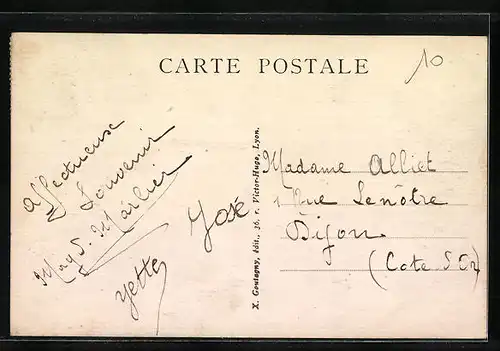 CARTE POSTALE
10
affectueuse
Souvenir
May S. Marlier
José
yette
X. Goutagny, édit., 36, r. Victor-Hugo, Lyon.
Madame Alliet
1 Rue Lenôtre
Dijon
(Cote d'Or)